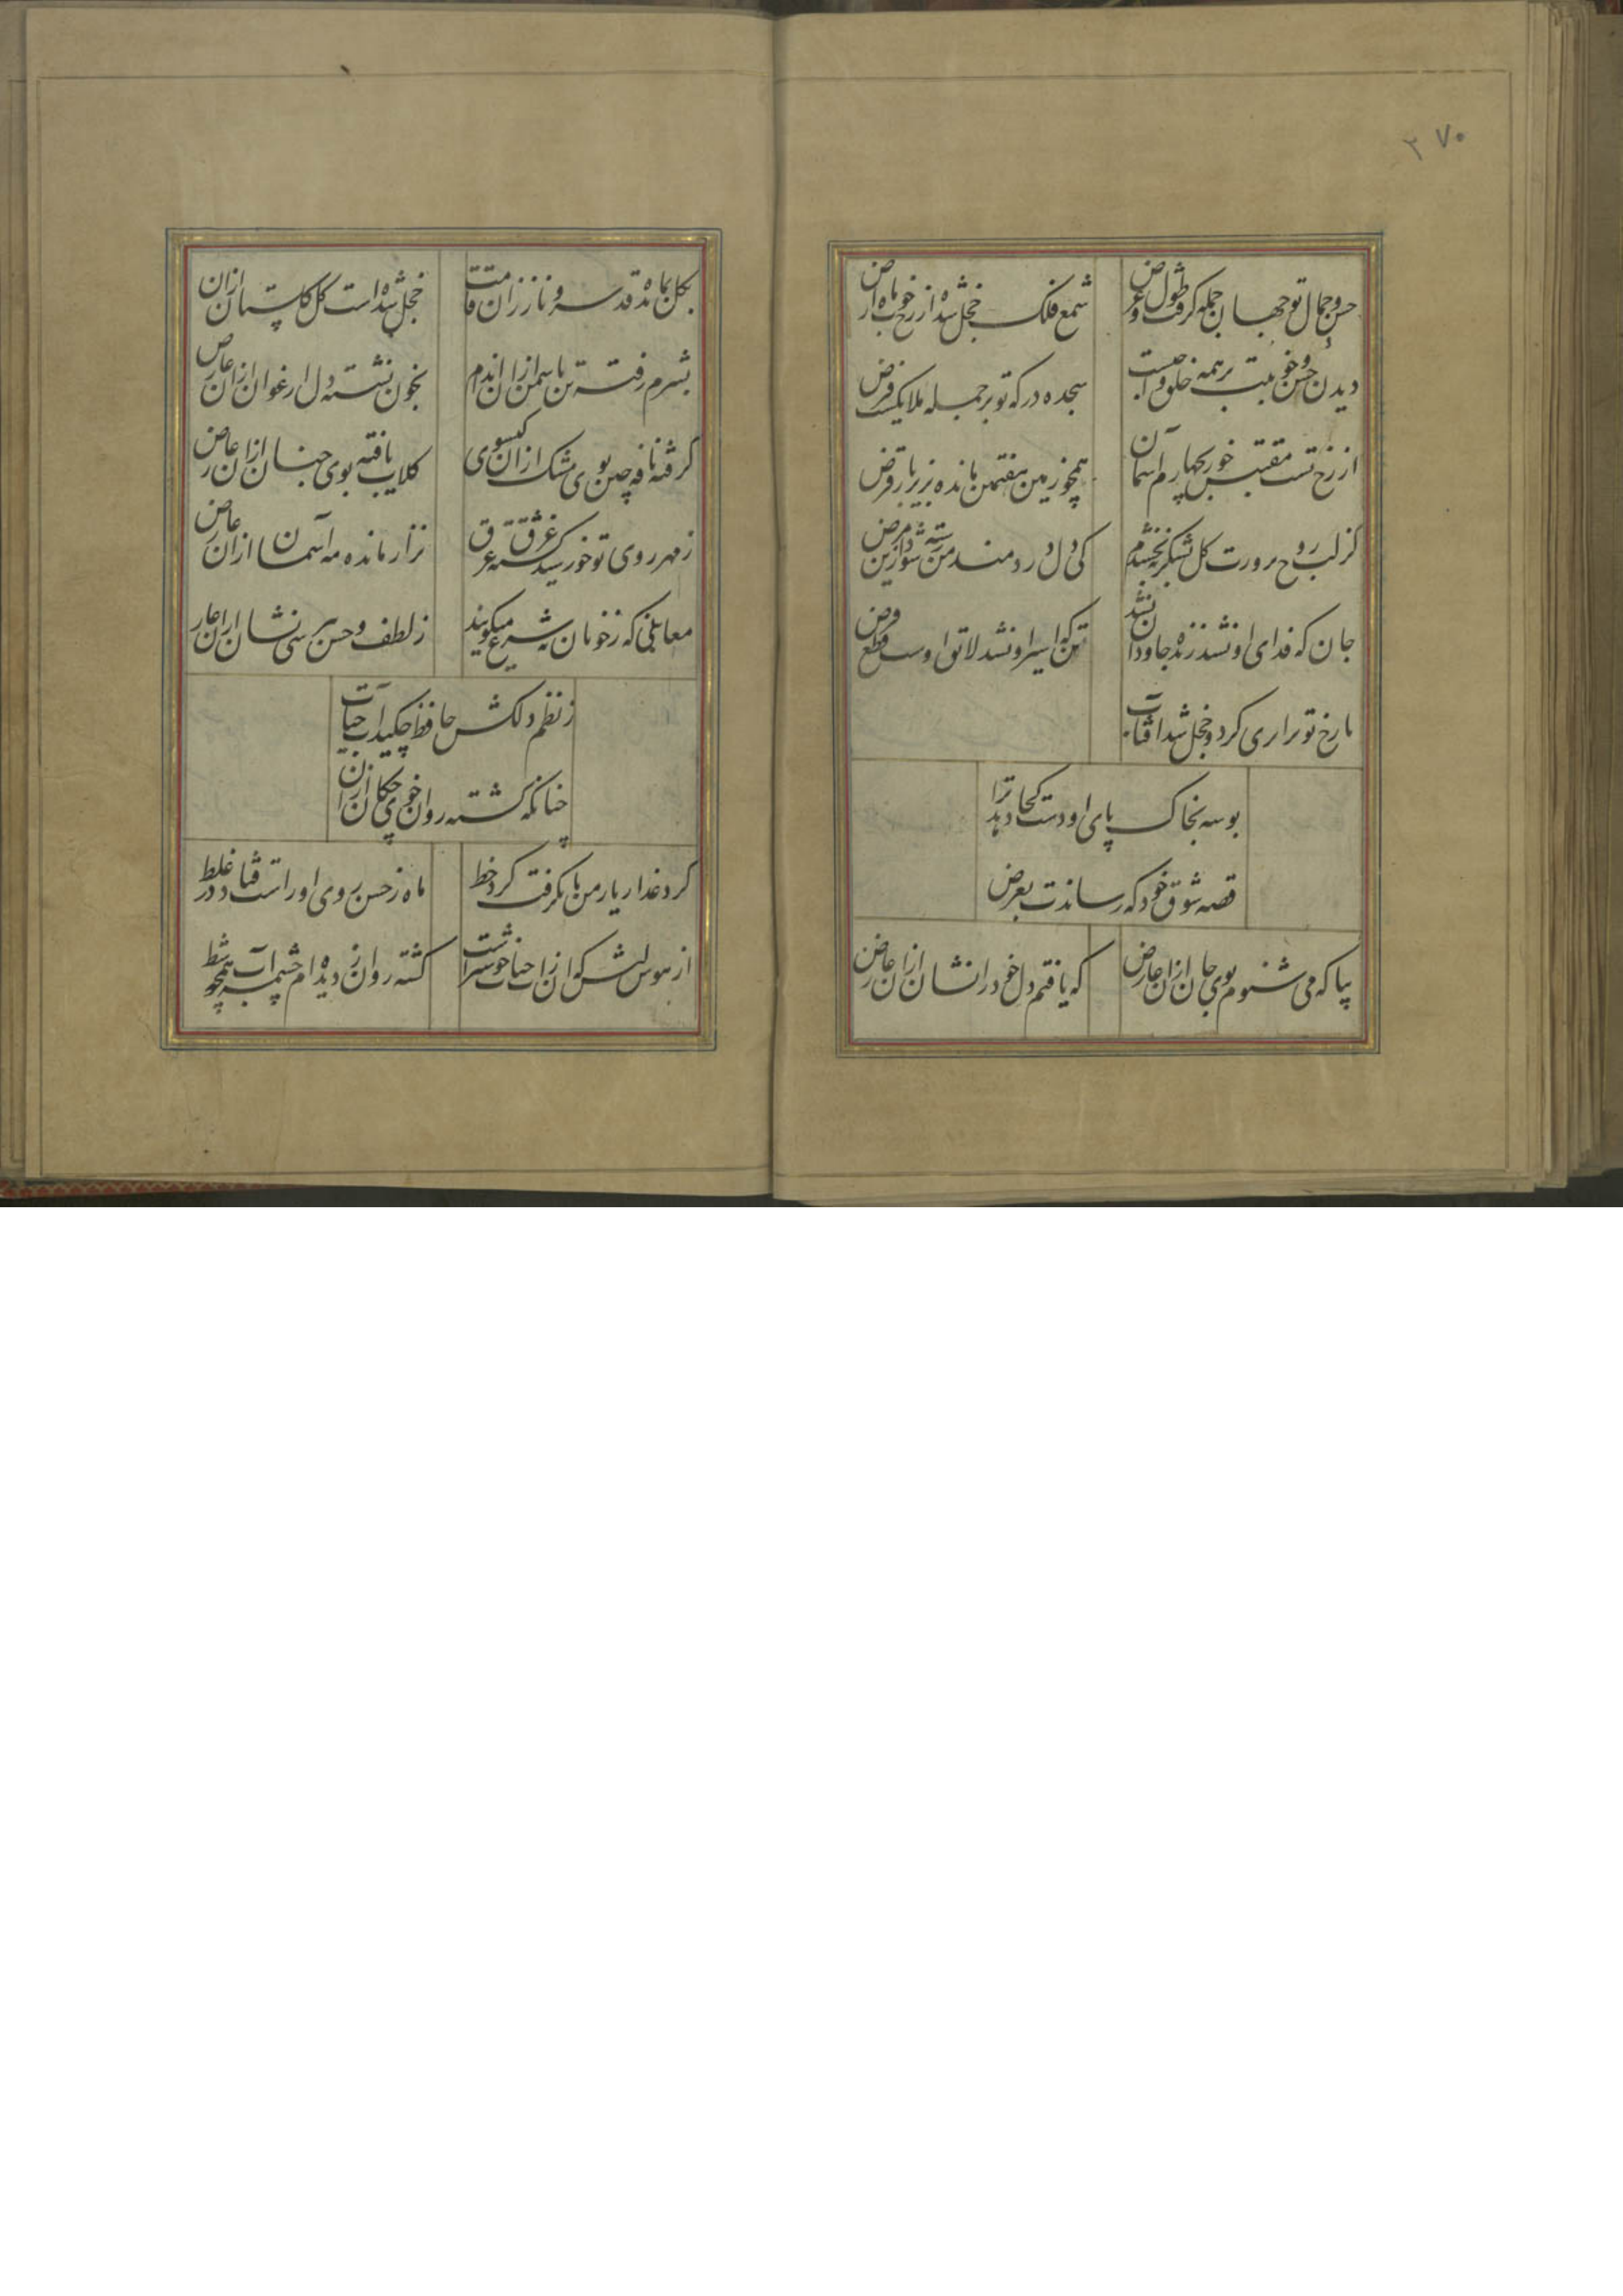 ۲۷۰
حسن و جمال تو جهان جمله گرفت طول و عرض
شمع فلک خجل شده از رخ خوب ماه ارض
دیدن حسن و خوبیت بر همه خلق واجبست
سجده درکه تو بر جمله ملایکست فرض
از رخ تست مقتبس خور بچهارم آسمان
همچو زمین هفتمین مانده بزیر بار قرض
گر لب روح پرورت گل شکری نبخشدم
کی دل دردمند من رسته شود ازین مرض
جان که فدای او نشد زنده جاودان نشد
تن که اسیر او نشد لایق اوست قطع و قرض
با رخ تو برابری کرد و خجل شد آفتاب
بوسه بخاک پای او دست کجا دهد ترا
قصه شوق خود که رساندت بعرض
بیا که می شنوم بوی جان ازان عارض
که یافتم دل خود را نشان ازان عارض
بگل بمانده قد سرو ناز زان قامت
خجل شده است گل گلستان ازان
بشرم رفته تن یاسمن ازان اندام
بخون نشسته دل ارغوان ازان عارض
گرفته نافه چین بوی مشک ازان گیسوی
گلاب یافته بوی جنان ازان عارض
ز مهر روی تو خورشید گشته غرق عرق
نزار مانده مه آسمان ازان عارض
معانیی که ز خوبان به شرع میگویند
ز لطف و حسن بپرسی نشان ازان عارض
ز نظم دلکش حافظ چکید آب حیات
چنانکه گشته روان خوی چکان ازان
گرد عذار یار من تا بگرفت گرد خط
ماه ز حسن روی او راست فتاد در غلط
از هوس لبش که آن ز آب حیات خوشتراست
گشته روان ز دیده ام چشمه آب همچو شط